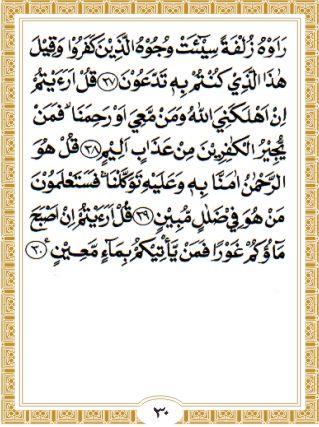 رَاَوْهُ زُلْفَةً سِيْٓـَٔتْ وُجُوْهُ الَّذِيْنَ كَفَرُوْا وَقِيْلَ
هٰذَا الَّذِيْ كُنْتُمْ بِهٖ تَدَّعُوْنَ ﴿٢٧﴾ قُلْ اَرَءَيْتُمْ
اِنْ اَهْلَكَنِيَ اللّٰهُ وَمَنْ مَّعِيَ اَوْ رَحِمَنَاۙ فَمَنْ
يُّجِيْرُ الْكٰفِرِيْنَ مِنْ عَذَابٍ اَلِيْمٍ ﴿٢٨﴾ قُلْ هُوَ
الرَّحْمٰنُ اٰمَنَّا بِهٖ وَعَلَيْهِ تَوَكَّلْنَاۚ فَسَتَعْلَمُوْنَ
مَنْ هُوَ فِيْ ضَلٰلٍ مُّبِيْنٍ ﴿٢٩﴾ قُلْ اَرَءَيْتُمْ اِنْ اَصْبَحَ
مَآؤُكُمْ غَوْرًا فَمَنْ يَّأْتِيْكُمْ بِمَآءٍ مَّعِيْنٍ ﴿٣٠﴾ ع
٣٠